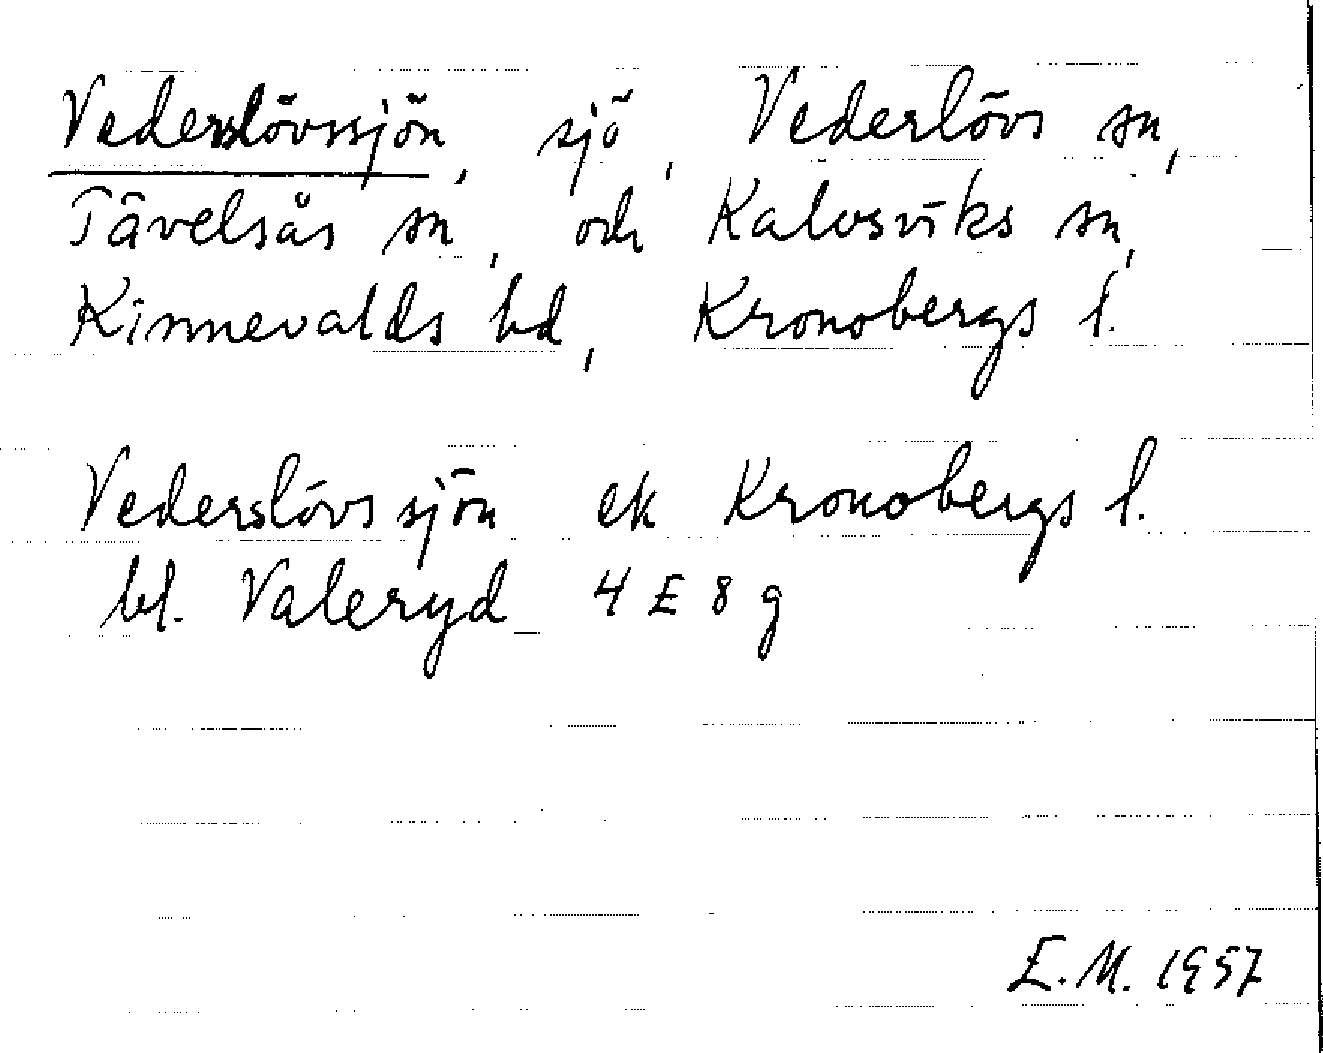 Vederslövssjön, sjö, Vederlövs sn,
Tävelsås sn, och Kalvsviks sn,
Kinnevalds hd, Kronobergs l.
Vederslövssjön ek Kronobergs l.
bl. Valeryd 4 E 8 g
E.M. 1957